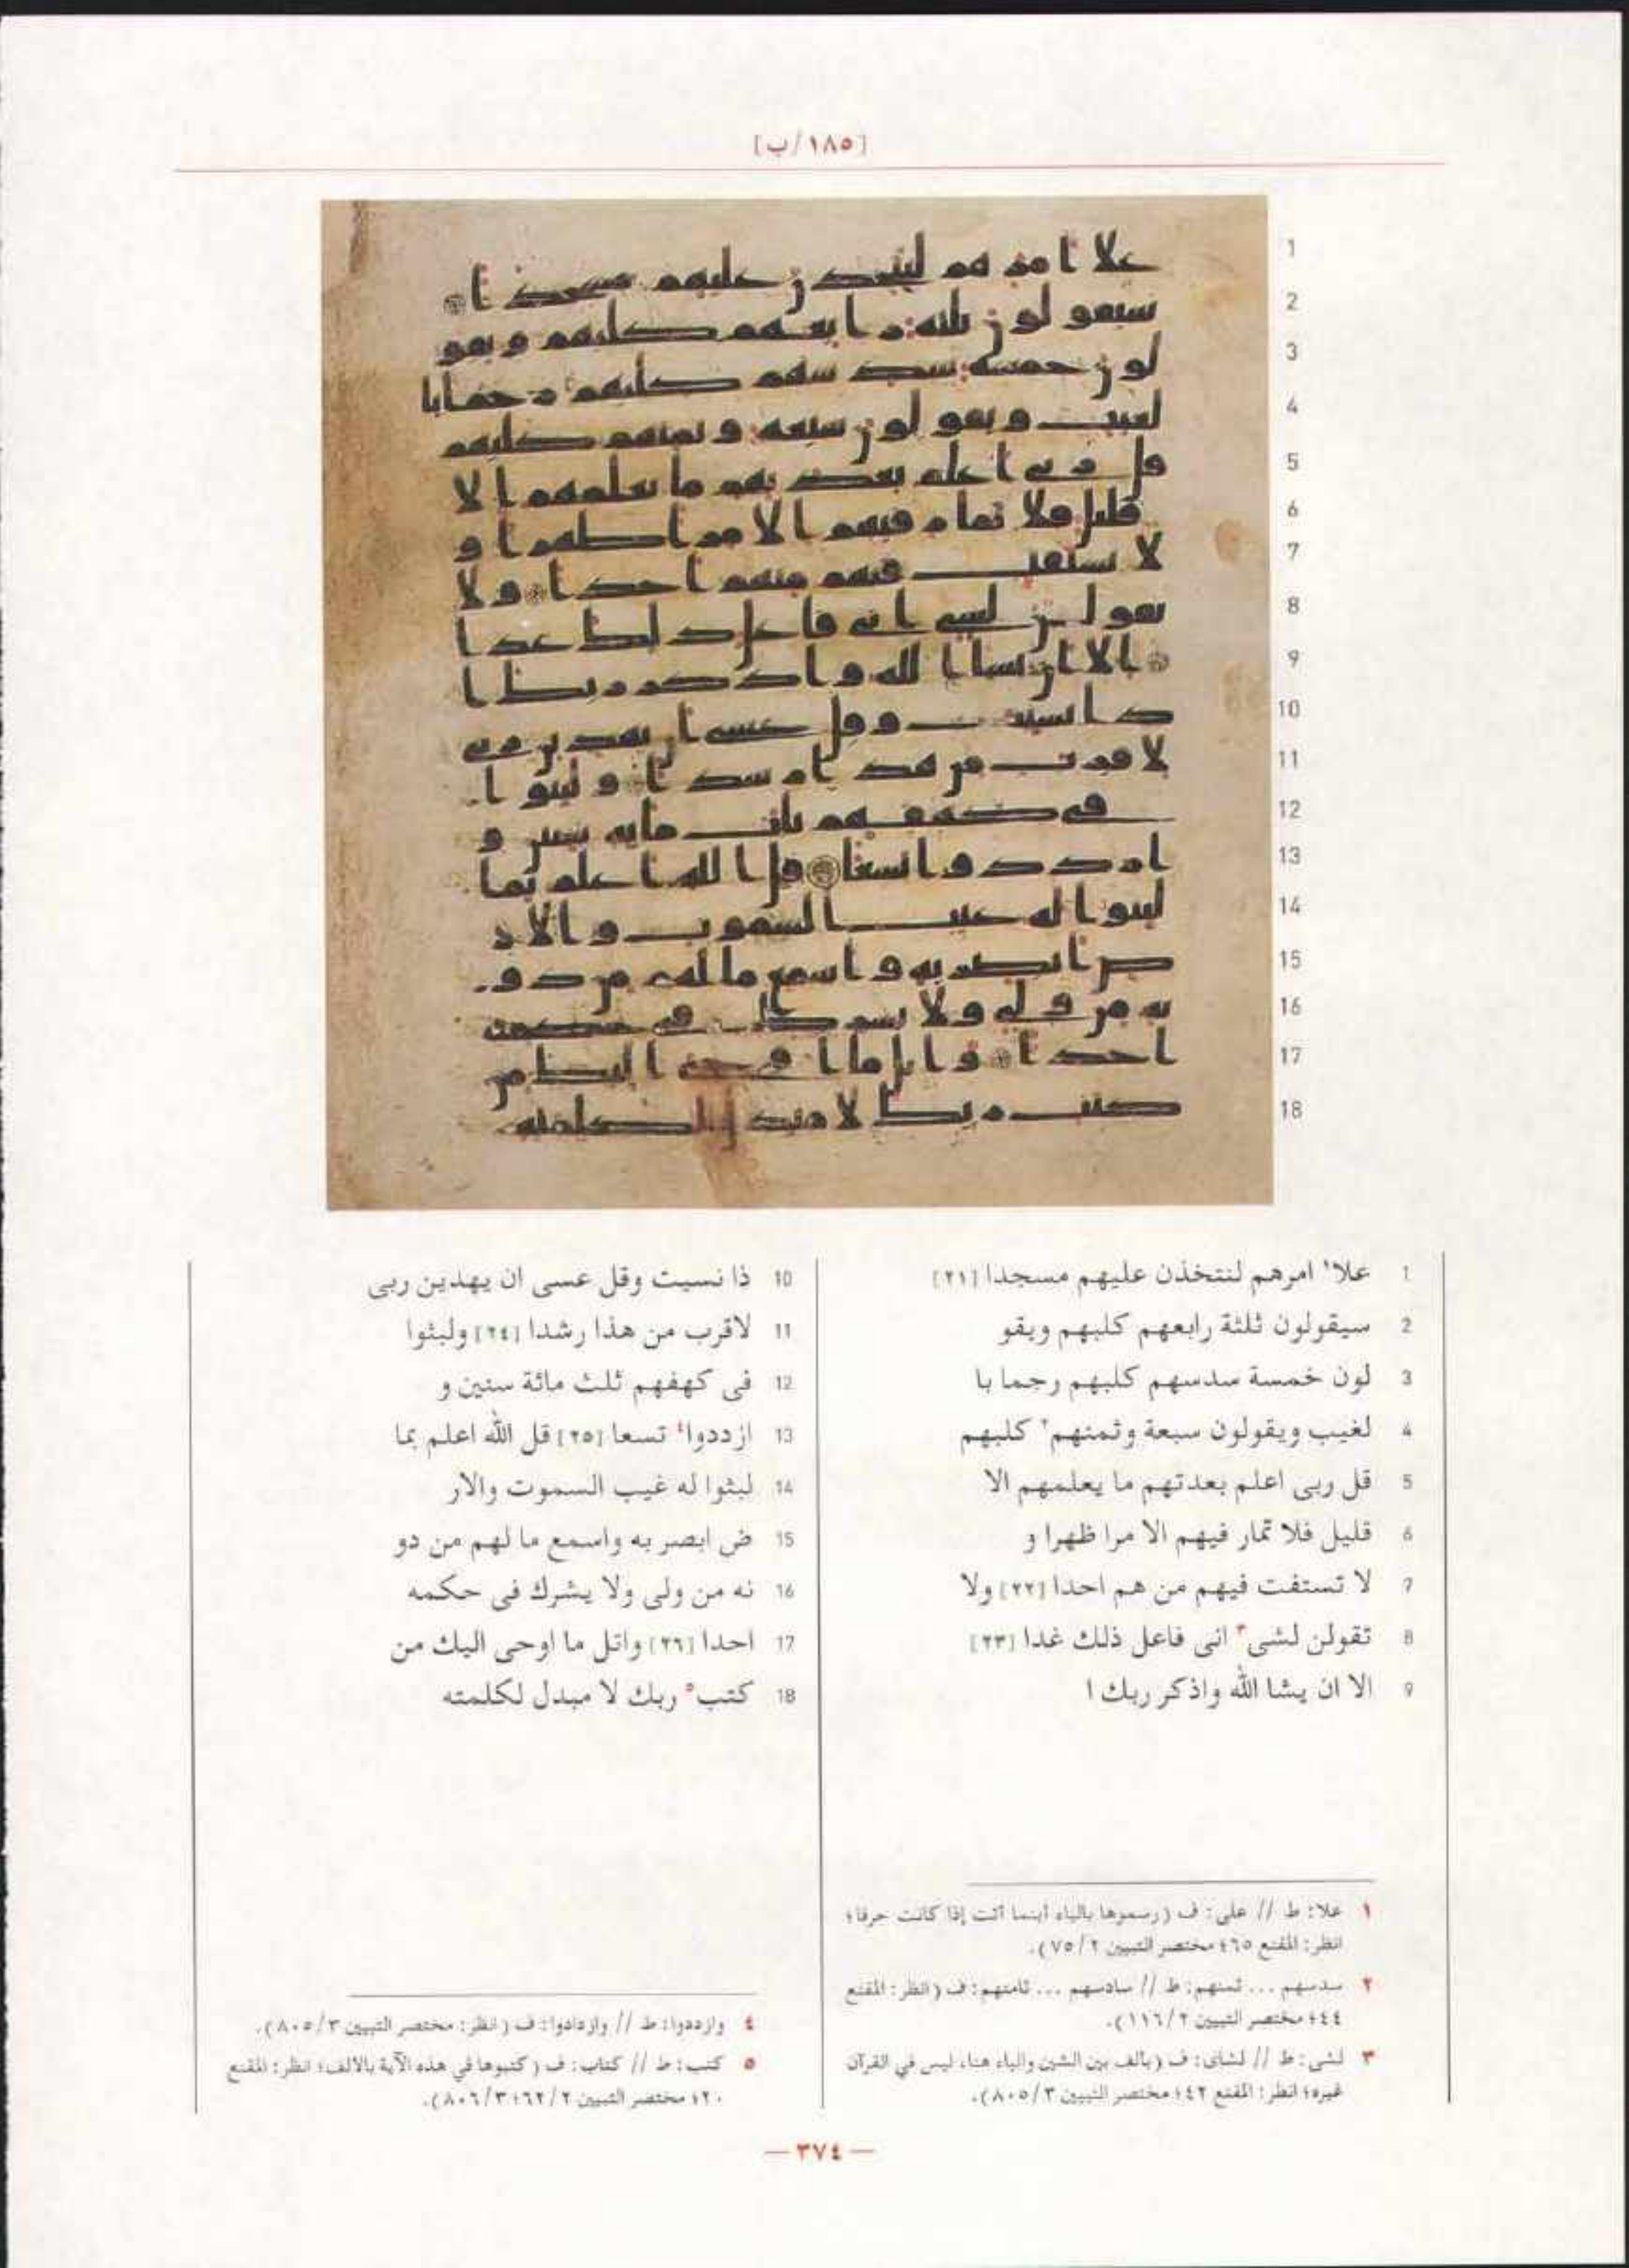 [١٨٥/ب]
1 علا١ امرهم لنتخذن عليهم مسجدا [٢١]
2 سيقولون ثلثة رابعهم كلبهم ويقو
3 لون خمسة سدسهم كلبهم رجما با
4 لغيب ويقولون سبعة وثمنهم٢ كلبهم
5 قل ربى اعلم بعدتهم ما يعلمهم الا
6 قليل فلا تمار فيهم الا مرا ظهرا و
7 لا تستفت فيهم من هم احدا [٢٢] ولا
8 تقولن لشى٣ انى فاعل ذلك غدا [٢٣]
9 الا ان يشا الله واذكر ربك ا
10 ذا نسيت وقل عسى ان يهدين ربى
11 لاقرب من هذا رشدا [٢٤] ولبثوا
12 فى كهفهم ثلث مائة سنين و
13 ازددوا٤ تسعا [٢٥] قل الله اعلم بما
14 لبثوا له غيب السموت والار
15 ض ابصر به واسمع ما لهم من دو
16 نه من ولى ولا يشرك فى حكمه
17 احدا [٢٦] واتل ما اوحى اليك من
18 كتب٥ ربك لا مبدل لكلمته
١ علا: ط // على: ف (رسموها بالياء أينما أتت إذا كانت حرفا؛
انظر: المقنع ٦٥؛ مختصر التبيين ٧٥/٢).
٢ سدسهم ... ثمنهم: ط // سادسهم ... ثامنهم: ف (انظر: المقنع
٤٤؛ مختصر التبيين ١١٦/٢).
٣ لشى: ط // لشاى: ف (بالف بين الشين والياء هنا، ليس في القرآن
غيره؛ انظر: المقنع ٤٢؛ مختصر التبيين ٨٠٥/٣).
٤ وازددوا: ط // وازدادوا: ف (انظر: مختصر التبيين ٨٠٥/٣).
٥ كتب: ط // كتاب: ف (كتبوها في هذه الآية بالالف؛ انظر: المقنع
٢٠؛ مختصر التبيين ٦٢/٢؛ ٨٠٦/٣).
— ٣٧٤ —